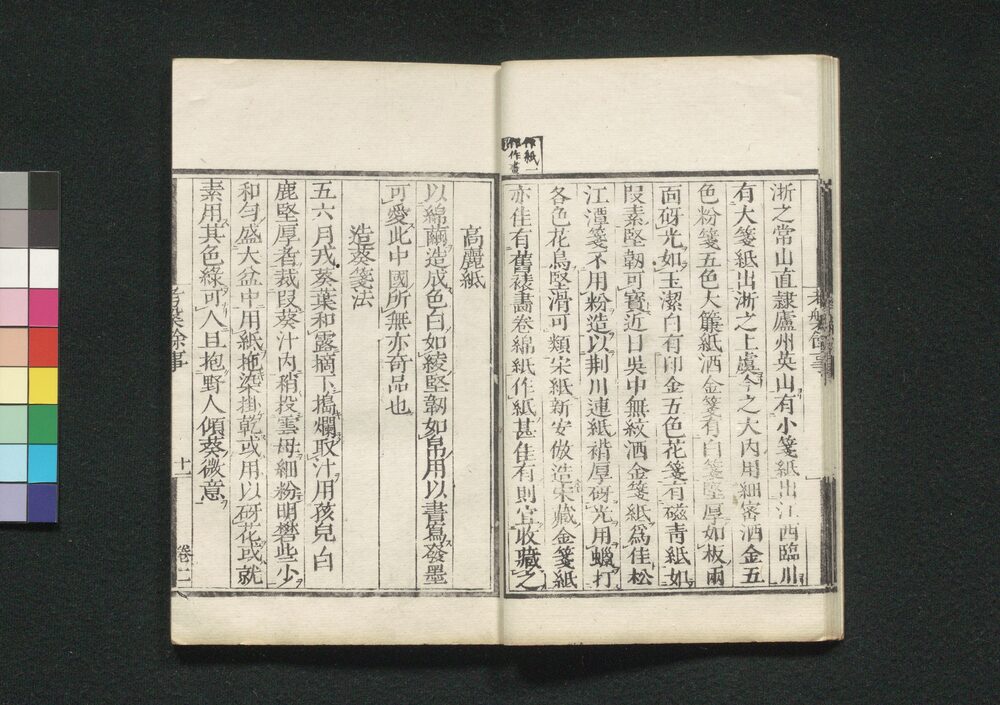 浙之常山直隷廬州英山有小箋紙出江西臨川
有大箋紙出浙之上虞今之大内用細密洒金五
色粉箋五色大簾紙洒金箋有白箋堅厚如板兩
面砑光如玉潔白有印金五色花箋有磁青紙如
段素堅韌可寳近日吳中無紋洒金箋紙爲佳松
江潭箋不用粉造以荆川連紙褙厚砑光用蠟打
各色花鳥堅滑可類宋紙新安倣造宋藏金箋紙
亦佳有舊裱畵卷綿紙作紙甚佳有則宜收藏之
高麗紙
以綿繭造成色白如綾堅韌如帛用以書寫發墨
可愛此中國所無亦奇品也
造葵箋法
五六月戎葵葉和露摘下搗爛取汁用孩兒白
鹿堅厚者裁段葵汁内稍投雲母細粉明礬些少
和匀盛大盆中用紙拖染掛乾或用以砑花或就
素用其色綠可人且抱野人傾葵微意
餘事
十一
卷二